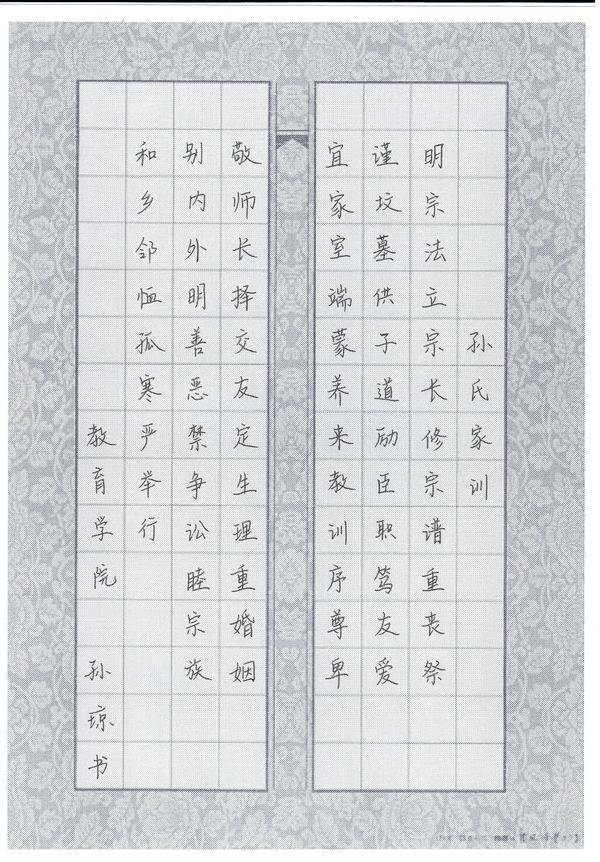 孙氏家训
明宗法立宗长修宗谱重丧祭
谨坟墓供子道励臣职笃友爱
宜家室端蒙养来教训序尊卑
敬师长择交友定生理重婚姻
别内外明善恶禁争讼睦宗族
和乡邻恤孤寒严举行
教育学院 孙琼书